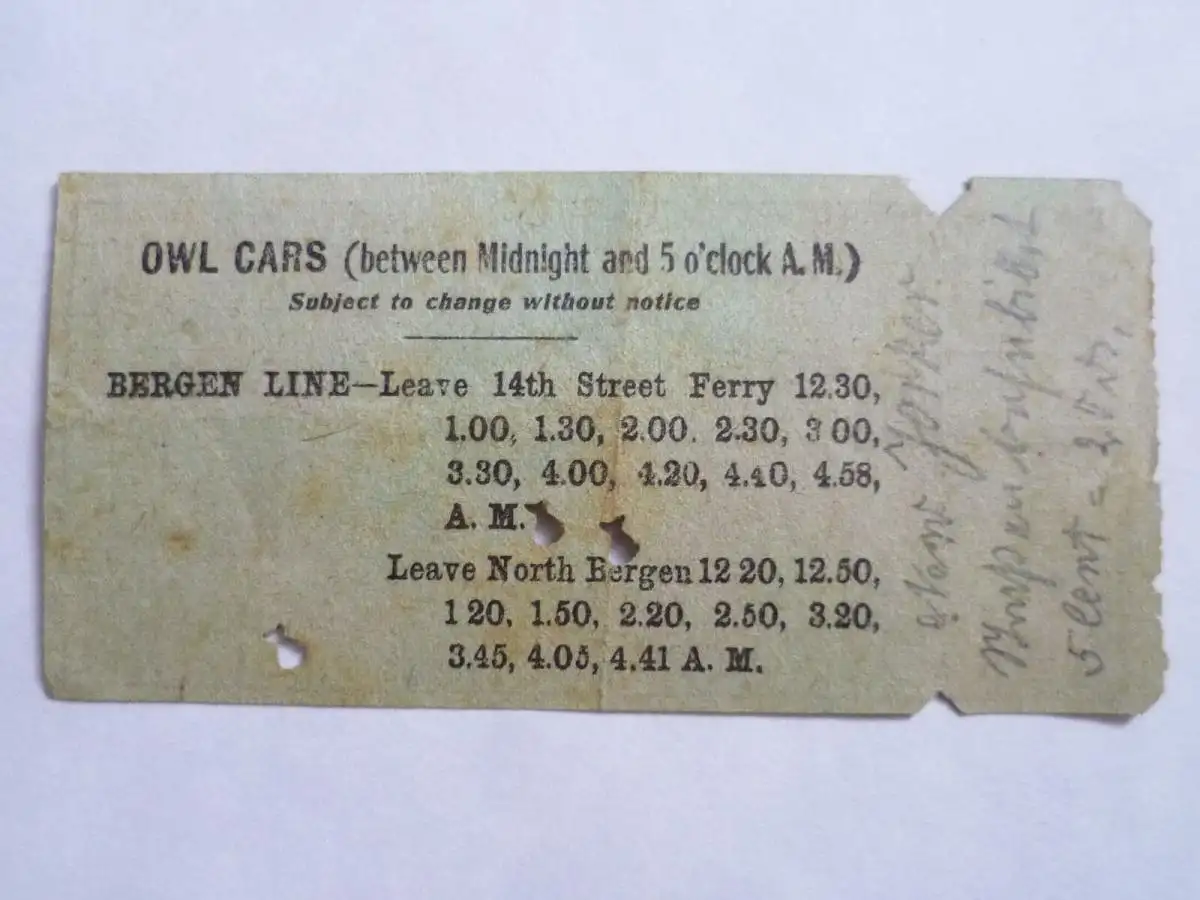 OWL CARS (between Midnight and 5 o'clock A. M.)
Subject to change without notice
BERGEN LINE—Leave 14th Street Ferry 12.30,
1.00, 1.30, 2.00. 2.30, 3 00,
3.30, 4.00, 4.20, 4.40, 4.58,
A. M.
Leave North Bergen 12 20, 12.50,
1 20, 1.50, 2.20, 2.50, 3.20,
3.45, 4.05, 4.41 A. M.
5 Cent =